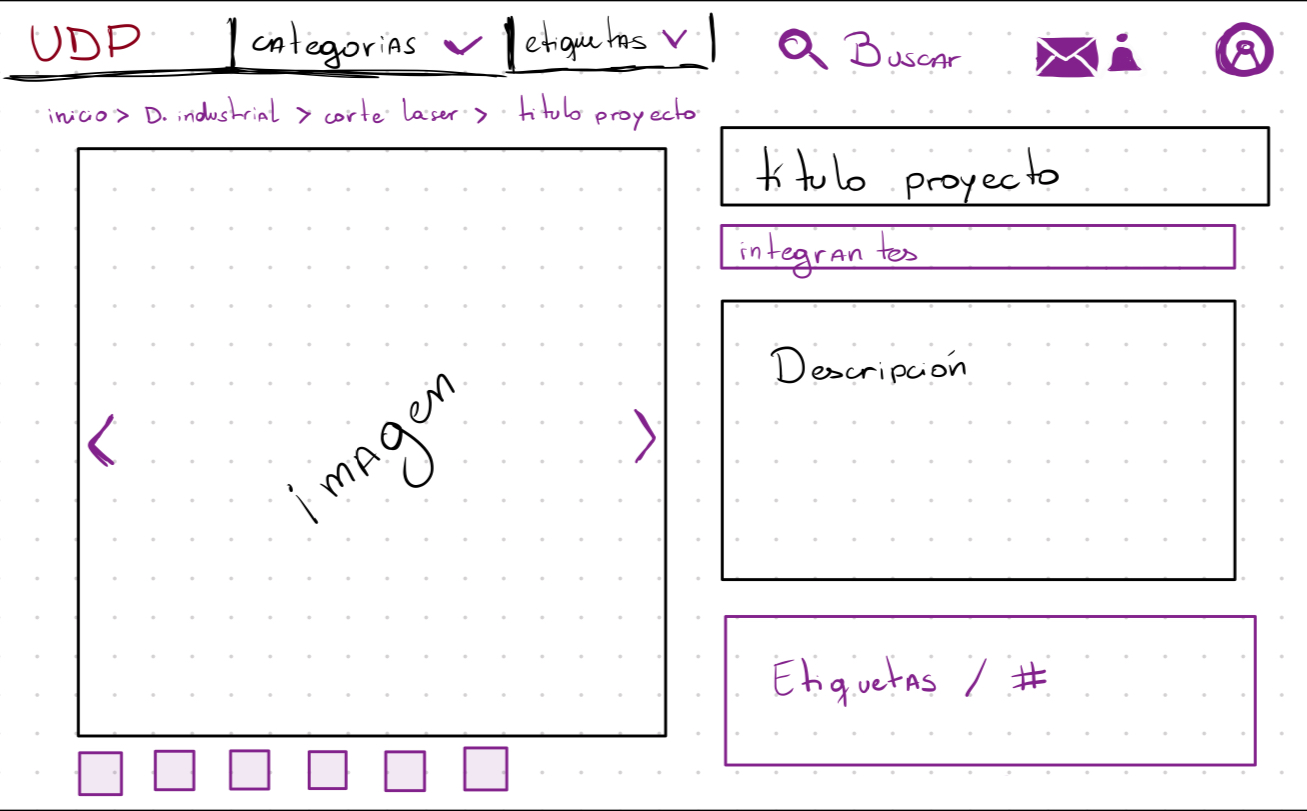 UDP categorias etiquetas Buscar
inicio > D. industrial > corte laser > titulo proyecto
título proyecto
integrantes
Descripción
imagen
Etiquetas / #